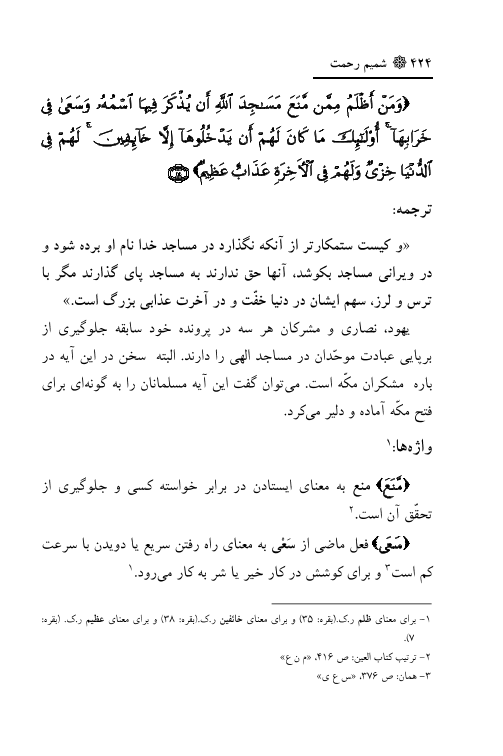 ۴۲۴ شمیم رحمت
﴿وَمَنْ أَظْلَمُ مِمَّن مَّنَعَ مَسَـٰجِدَ ٱللَّهِ أَن يُذْكَرَ فِيهَا ٱسْمُهُۥ وَسَعَىٰ فِى
خَرَابِهَآ ۚ أُو۟لَـٰٓئِكَ مَا كَانَ لَهُمْ أَن يَدْخُلُوهَآ إِلَّا خَآئِفِينَ ۚ لَهُمْ فِى
ٱلدُّنْيَا خِزْىٌ وَلَهُمْ فِى ٱلْـَٔاخِرَةِ عَذَابٌ عَظِيمٌ﴾
ترجمه:
«و کیست ستمکارتر از آنکه نگذارد در مساجد خدا نام او برده شود و
در ویرانی مساجد بکوشد، آنها حق ندارند به مساجد پای گذارند مگر با
ترس و لرز، سهم ایشان در دنیا خفّت و در آخرت عذابی بزرگ است.»
یهود، نصاری و مشرکان هر سه در پرونده خود سابقه جلوگیری از
برپایی عبادت موحّدان در مساجد الهی را دارند. البته سخن در این آیه در
باره مشکران مکّه است. می‌توان گفت این آیه مسلمانان را به گونه‌ای برای
فتح مکّه آماده و دلیر می‌کرد.
واژه‌ها:۱
﴿مَّنَعَ﴾ منع به معنای ایستادن در برابر خواسته کسی و جلوگیری از
تحقّق آن است.۲
﴿سَعَىٰ﴾ فعل ماضی از سَعْی به معنای راه رفتن سریع یا دویدن با سرعت
کم است۳ و برای کوشش در کار خیر یا شر به کار می‌رود.۱
۱- برای معنای ظلم ر.ک.(بقره: ۳۵) و برای معنای خائفین ر.ک.(بقره: ۳۸) و برای معنای عظیم ر.ک. (بقره:
۷).
۲- ترتیب کتاب العین: ص ۴۱۶، «م ن ع»
۳- همان: ص ۳۷۶، «س ع ی»